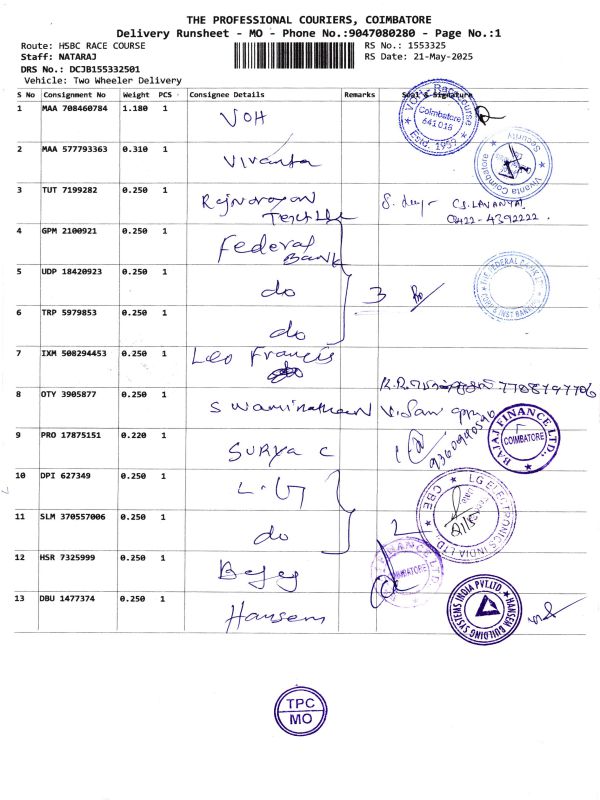 THE PROFESSIONAL COURIERS, COIMBATORE
Delivery Runsheet - MO - Phone No.:9047080280 - Page No.:1
Route: HSBC RACE COURSE RS No.: 1553325
Staff: NATARAJ RS Date: 21-May-2025
DRS No.: DCJB155332501
Vehicle: Two Wheeler Delivery
S No Consignment No Weight PCS Consignee Details Remarks Seal & Signature
1 MAA 708460784 1.180 1 VOH Coimbatore 641 018 Estd. 1959
2 MAA 577793363 0.310 1 Vivanta Vivanta Coimbatore Security
3 TUT 7199282 0.250 1 Rajnarayan Textile C.S. LAVANYA
0422-4392222.
4 GPM 2100921 0.250 1 Federal Bank
5 UDP 18420923 0.250 1 do 3 THE FEDERAL BANK LTD.
6 TRP 5979853 0.250 1 do
7 IXM 508294453 0.250 1 Leo Francis
8 OTY 3905877 0.250 1 Swaminathan 7708797706
9 PRO 17875151 0.220 1 SURYA C 9360990596 BAJAJ FINANCE LTD., COIMBATORE
10 DPI 627349 0.250 1 L.G LG ELECTRONICS INDIA LTD., CBE
11 SLM 370557006 0.250 1 do 2 21/5
12 HSR 7325999 0.250 1 Bajaj FINANCE LTD
13 DBU 1477374 0.250 1 Hansem HANSEM BUILDING SYSTEMS INDIA PVT.LTD
TPC
MO